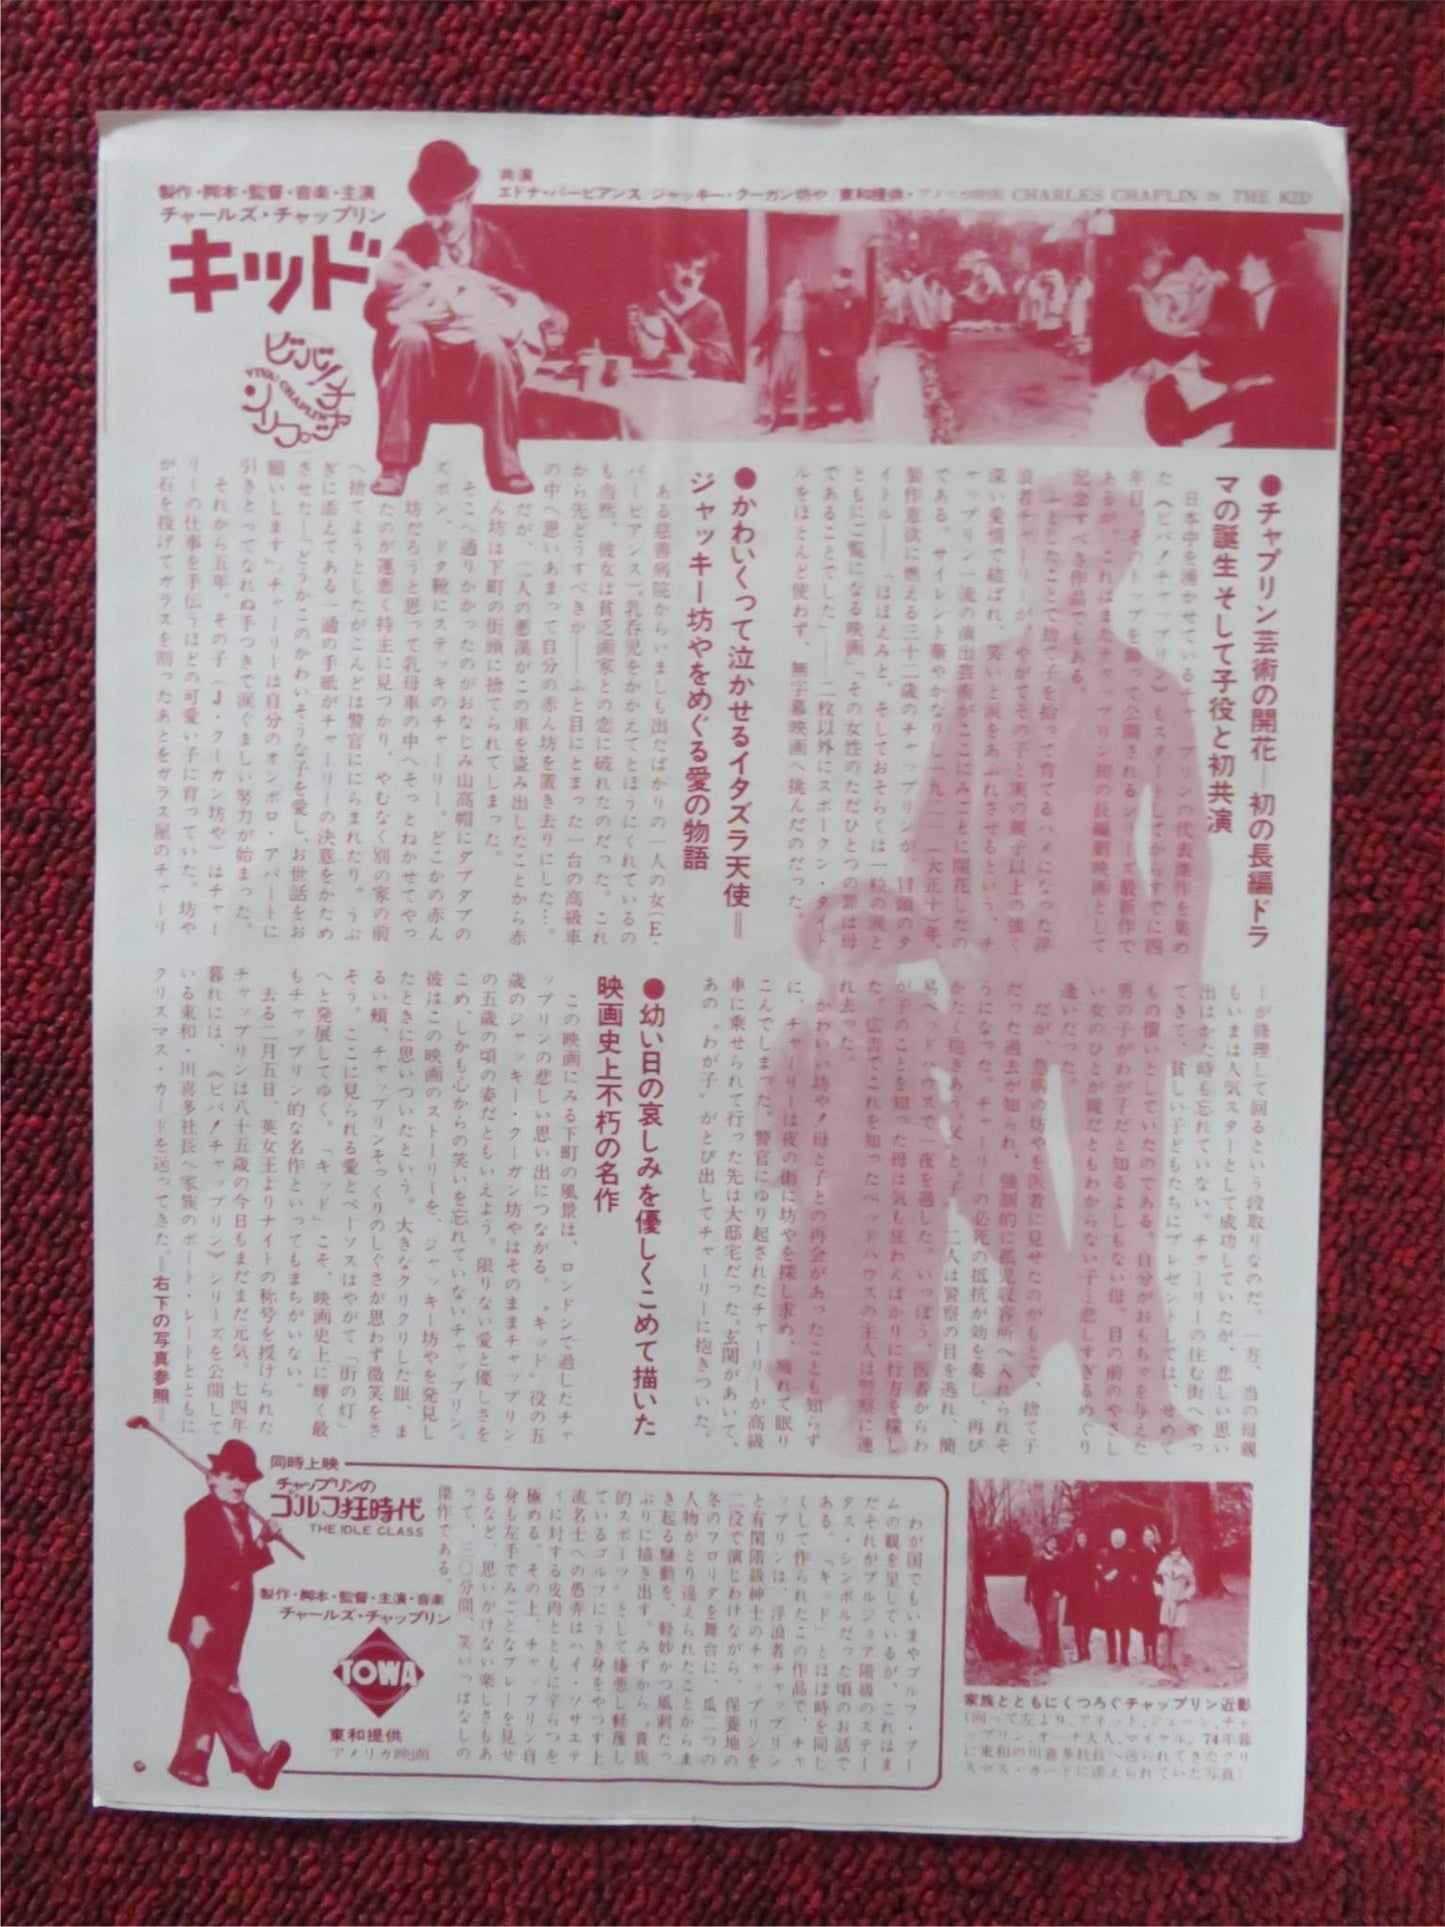 製作・脚本・監督・音楽・主演
チャールズ・チャップリン
キッド
ビバ!チャップリン
VIVA! CHAPLIN
共演
エドナ・パービアンス/ジャッキー・クーガン坊や/東和提供・アメリカ映画 CHARLES CHAPLIN IN THE KID
●チャプリン芸術の開花—初の長編ドラ
マの誕生そして子役と初共演
日本中を沸かせているチャップリンの代表傑作を集め
た《ビバ!チャップリン》もスタートしてからすでに四
年目、そのトップを飾って公開されるシリーズ最新作で
あるが、これはまたチャップリン初の長編劇映画として
記念すべき作品でもある。
ふとしたことで捨て子を拾って育てるハメになった浮
浪者チャーリーが、やがてその子と実の親子以上の強く
深い愛情で結ばれ、笑いと涙をあふれさせるという、チ
ャップリン一流の演出芸術がここにみごとに開花したの
である。サイレント華やかなりし一九二一(大正十)年、
製作意欲に燃える三十二歳のチャップリンが、冒頭のタ
イトル——「ほほえみと、そしておそらくは一粒の涙と
ともにご覧になる映画」「その女性のただひとつの罪は母
であることでした」——二枚以外にスポークン・タイト
ルをほとんど使わず、無字幕映画へ挑んだのだった。
●かわいくって泣かせるイタズラ天使=
ジャッキー坊やをめぐる愛の物語
ある慈善病院からいましも出たばかりの一人の女(E・
パービアンス)。乳呑児をかかえてとほうにくれているの
も当然、彼女は貧乏画家との恋に破れたのだった。これ
から先どうすべきか——ふと目にとまった一台の高級車
の中へ思いあまって自分の赤ん坊を置き去りにした…。
だが、二人の悪漢がこの車を盗み出したことから赤
ん坊は下町の街頭に捨てられてしまった。
そこへ通りかかったのがおなじみ山高帽にダブダブの
ズボン、ドタ靴にステッキのチャーリー。どこかの赤ん
坊だろうと思って乳母車の中へそっとねかせてやっ
たのが運悪く持主に見つかり、やむなく別の家の前
へ捨てようとしたがこんどは警官ににらまれたり。うぶ
ぎに添えてある一通の手紙がチャーリーの決意をかため
させた—「どうかこのかわいそうな子を愛し、お世話をお
願いします」。チャーリーは自分のオンボロ・アパートに
引きとってなれぬ手つきで涙ぐましい努力が始まった。
それから五年。その子(J・クーガン坊や)はチャー
リーの仕事を手伝うほどの可愛い子に育っていた。坊や
が石を投げてガラスを割ったあとをガラス屋のチャーリ
ーが修理して回るという段取りなのだ。一方、当の母親
もいまは人気スターとして成功していたが、悲しい思い
出はかた時も忘れていない。チャーリーの住む街へやっ
てきて、貧しい子どもたちにプレゼントしては、せめて
もの償いとしていたのである。自分がおもちゃを与えた
男の子がわが子だと知るよしもない母。目の前のやさし
い女のひとが親だともわからない子…悲しすぎるめぐり
逢いだった。
だが、急病の坊やを医者に見せたのがもとで、捨て子
だった過去が知られ、強制的に孤児収容所へ入れられそ
うになった。チャーリーの必死の抵抗が効を奏し、再び
かたく抱きあう〝父〟と〝子〟。二人は警察の目を逃れ、簡
易ベッドハウスで一夜を過した。いっぽう、医者からわ
が子のことを知った母は気も狂わんばかりに行方を探し
た。広告でこれを知ったベッドハウスの主人は警察に連
れ去った。
かわいい坊や!母と子との再会があったことも知らず
に、チャーリーは夜の街に坊やを探し求め、疲れて眠り
こんでしまった。警官にゆり起されたチャーリーが高級
車に乗せられて行った先は大邸宅だった。玄関があいて、
あの〝わが子〟がとび出してチャーリーに抱きついた。
●幼い日の哀しみを優しくこめて描いた
映画史上不朽の名作
この映画にみる下町の風景は、ロンドンで過したチャ
ップリンの悲しい思い出につながる。〝キッド〟役の五
歳のジャッキー・クーガン坊やはそのままチャップリン
の五歳の頃の姿だともいえよう。限りない愛と優しさを
こめ、しかも心からの笑いを忘れていないチャップリン。
彼はこの映画のストーリーを、ジャッキー坊やを発見し
たときに思いついたという。大きなクリクリした眼、ま
るい頬、チャップリンそっくりのしぐさが思わず微笑をさ
そう。ここに見られる愛とペーソスはやがて「街の灯」
へと発展してゆく。「キッド」こそ、映画史上に輝く最
もチャップリン的な名作といってもまちがいない。
去る二月五日、英女王よりナイトの称号を授けられた
チャップリンは八十五歳の今日もまだまだ元気。七四年
暮れには、《ビバ!チャップリン》シリーズを公開して
いる東和・川喜多社長へ家族のポート・レートとともに
クリスマス・カードを送ってきた。=右下の写真参照=
同時上映
チャップリンの
ゴルフ狂時代
THE IDLE CLASS
製作・脚本・監督・主演・音楽
チャールズ・チャップリン
TOWA
東和提供
アメリカ映画
わが国でもいまやゴルフ・ブー
ムの観を呈しているが、これはま
だそれがブルジョア階級のステー
タス・シンボルだった頃のお話で
ある。「キッド」とほぼ時を同じ
くして作られたこの作品で、チャ
ップリンは、浮浪者チャップリン
と有閑階級紳士のチャップリンを
二役で演じわけながら、保養地の
冬のフロリダを舞台に、瓜二つの
人物がとり違えられたことからま
き起る騒動を、軽妙かつ風刺たっ
ぷりに描き出す。みずから〝貴族
的スポーツ〟として嫌悪し軽蔑し
ているゴルフにうき身をやつす上
流名士への愚弄はハイ・ソサエテ
ィに対する皮肉とともに辛らつを
極める。その上、チャップリン自
身も左手でみごとなプレーを見せ
るなど、思いがけない楽しさもあ
って、三〇分間、笑いっぱなしの
傑作である。
家族とともにくつろぐチャップリン近影
(向って左より、アネット、ジェーン、チャ
ップリン、オーナ夫人、マイケル。74年暮
に東和の川喜多社長へ送られてきたクリ
スマス・カードに添えられていた写真)